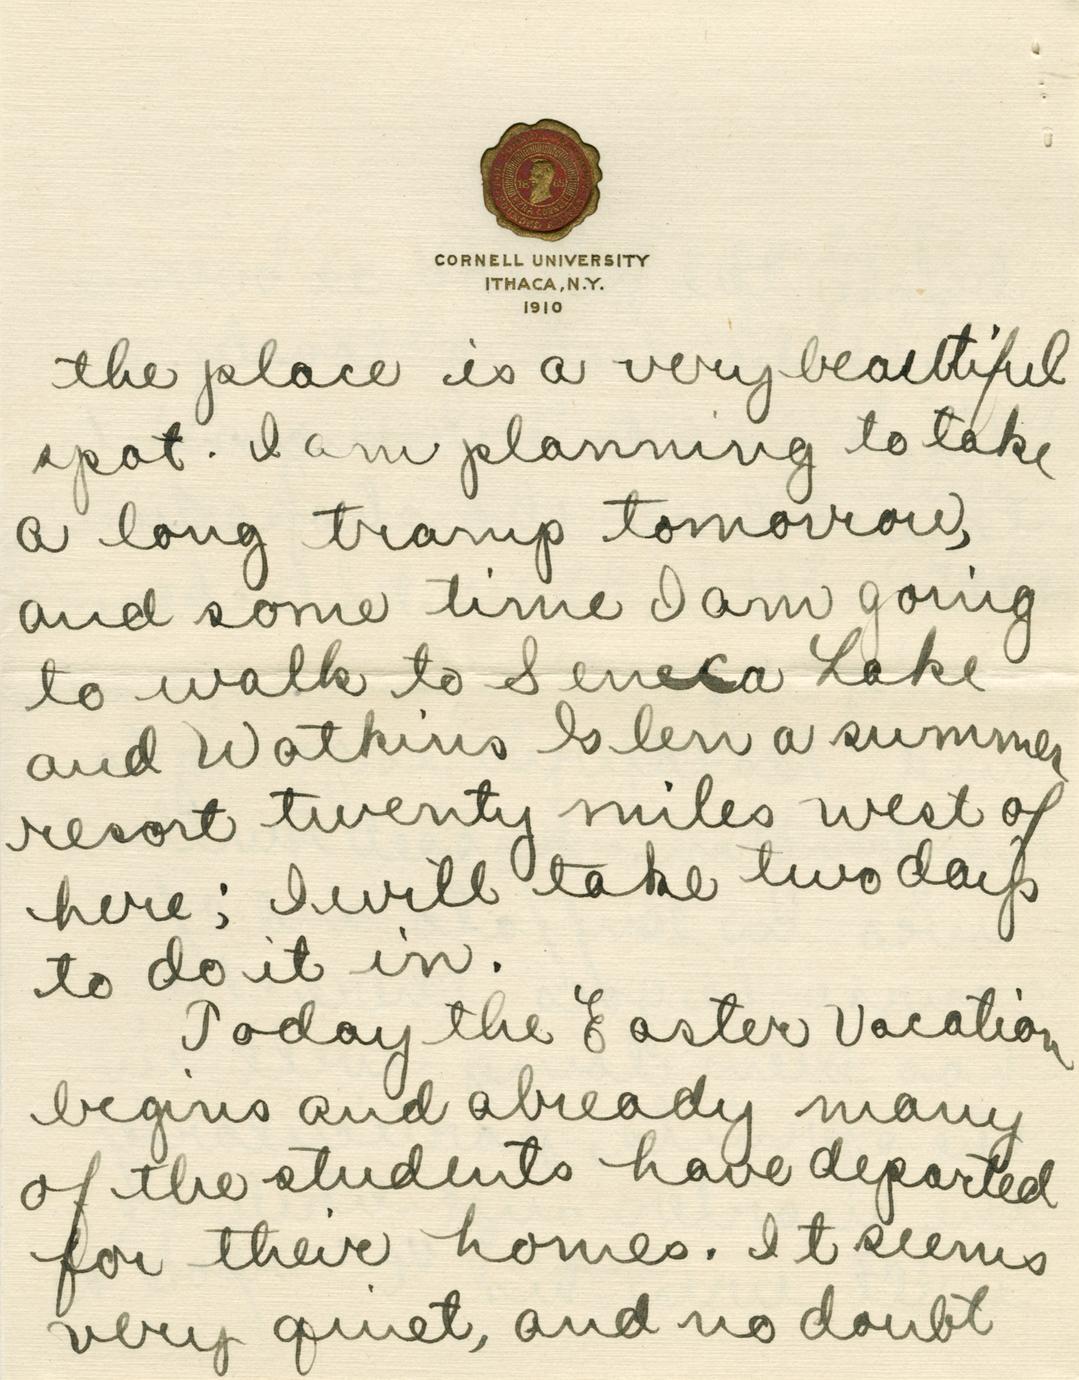 CORNELL UNIVERSITY
ITHACA, N.Y.
1910
the place is a very beautiful
spot. I am planning to take
a long tramp tomorrow,
and some time I am going
to walk to Seneca Lake
and Watkins Glen a summer
resort twenty miles west of
here; I will take two days
to do it in.
Today the Easter Vacation
begins and already many
of the students have departed
for their homes. It seems
very quiet, and no doubt